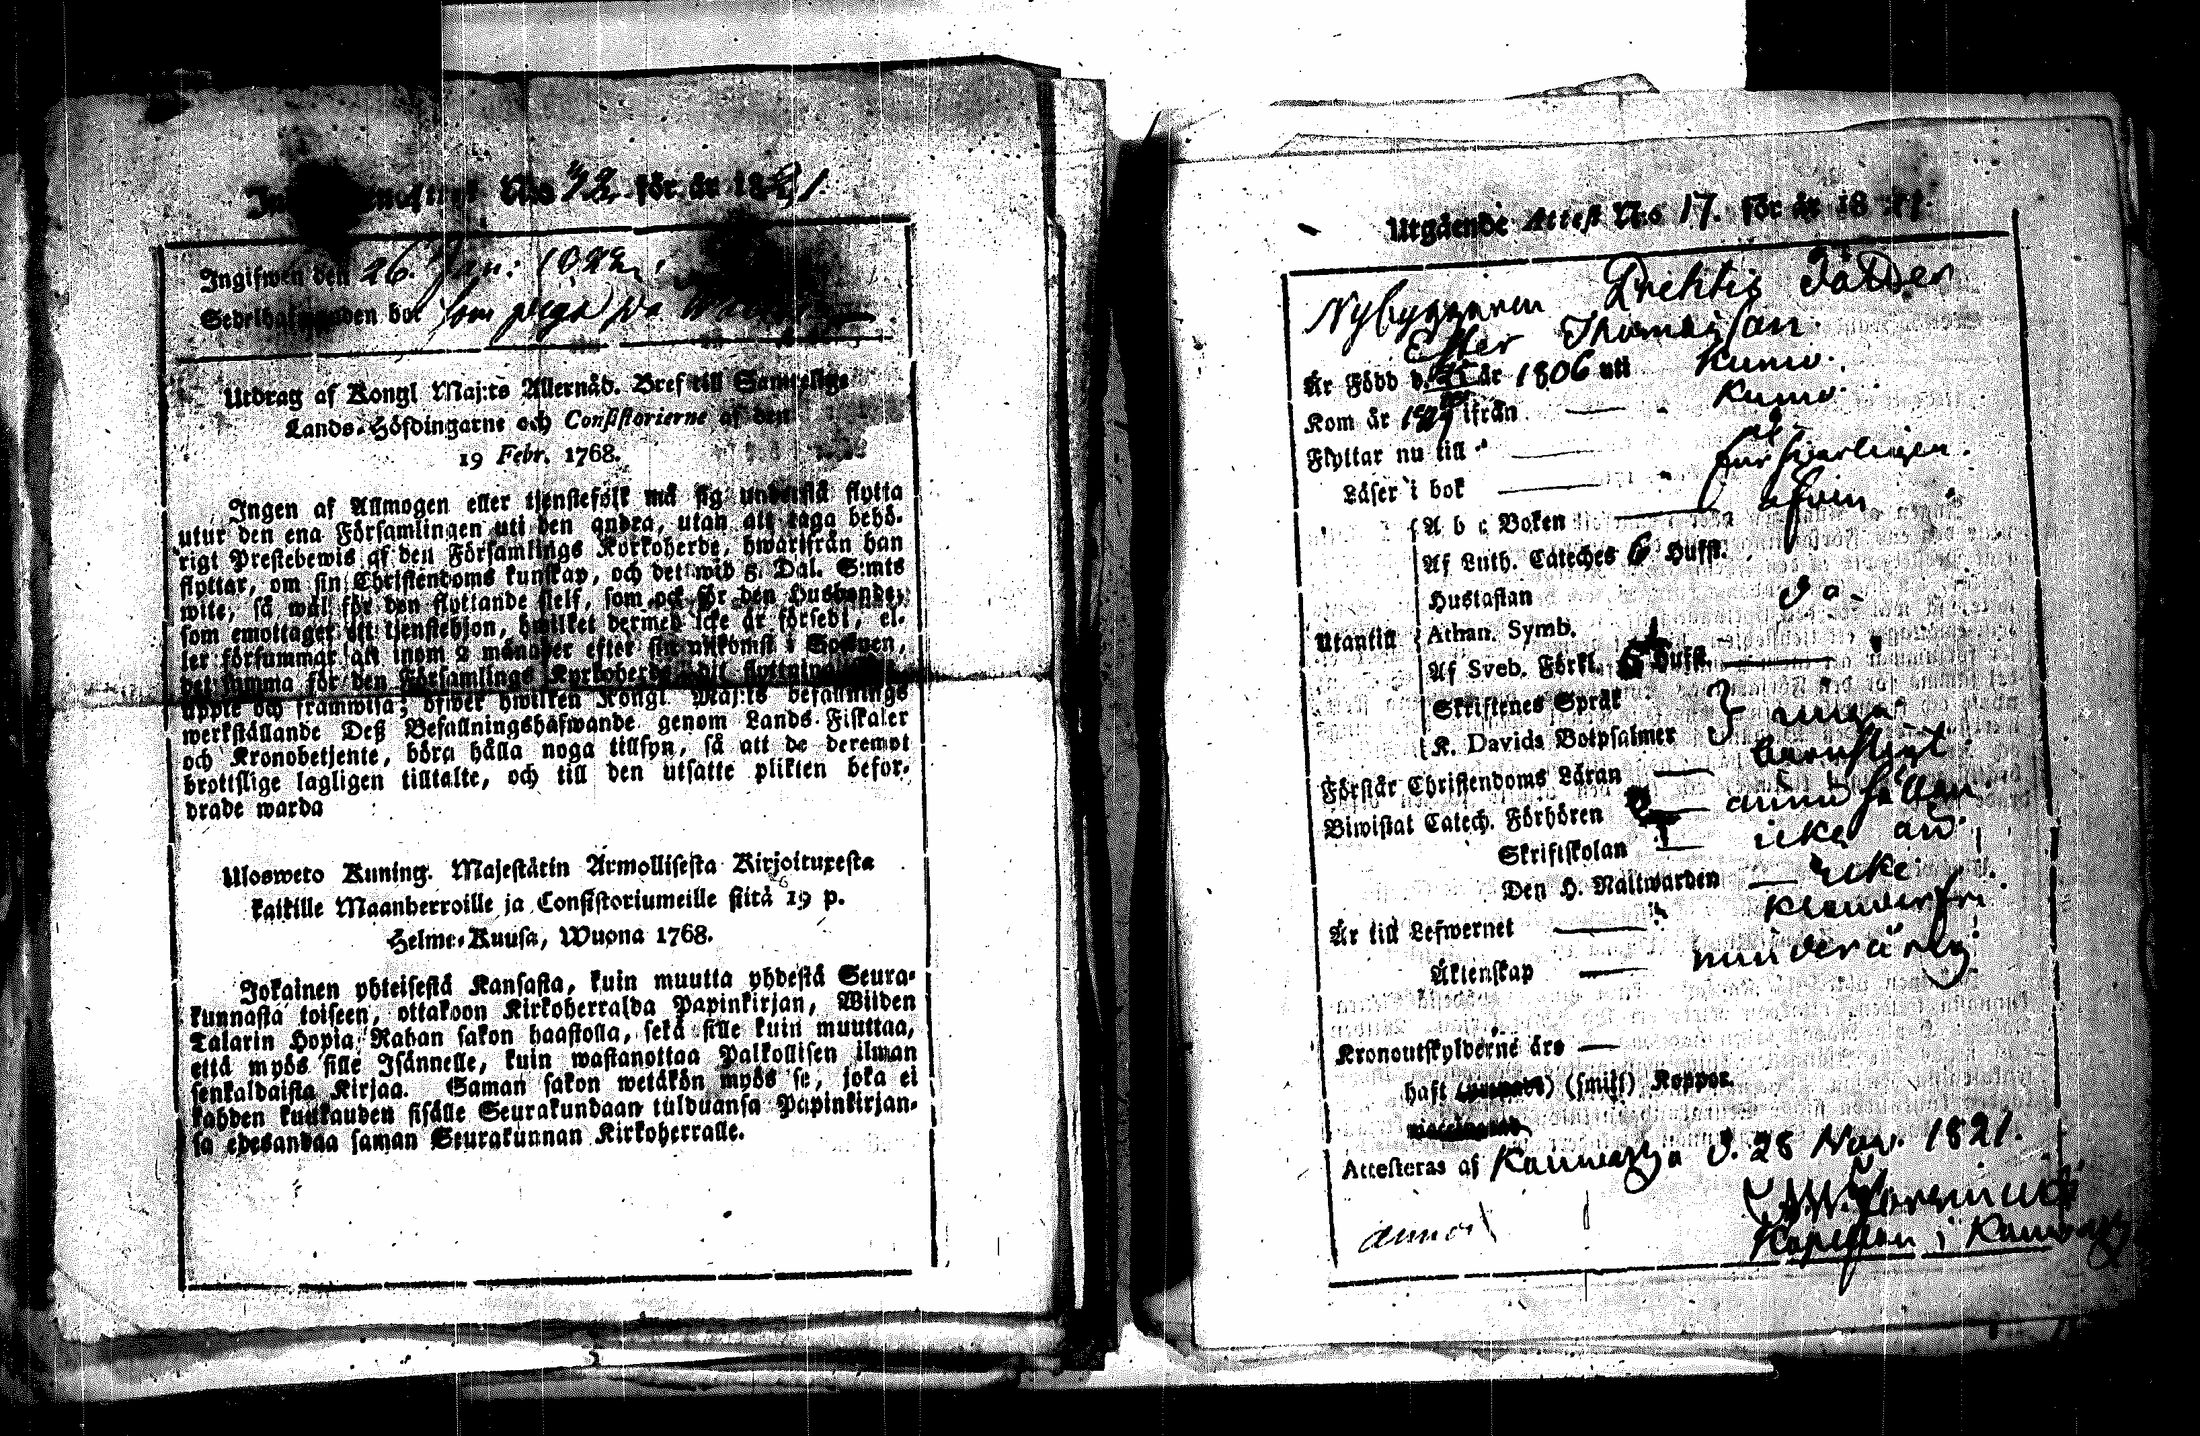 No 72 för år 1821
Ingifwen den 26. Jan: 1822
Sedelhafwanden bor som piga på
Utdrag af Kongl Maj:ts Allernåd. Bref till Samtelige
Lands-Höfdingarne och Consistorierne af den
19 Febr. 1768.
Ingen af Allmogen eller tjenstefolk må sig understå flytta
utur den ena Församlingen uti den andra, utan att taga behö-
rigt Prestebewis af den Församlings Kyrkoherde, hwarifrån han
flyttar, om sin Christendoms kunskap, och det wid 5. Dal. S:mts
wite, så wäl för den flyttande sielf, som ock för den Husbonde,
som emottager ett tjenstehjon, hwilket dermed icke är försedt, el-
ler försummar att inom 2 månader efter sin ankomst i Socknen,
det samma för den Församlings Kyrkoherde, dit flyttning
uppte och framwisa; öfwer hwilken Kongl Maj:ts befallnings
werkställande Deß Befallningshafwande genom Lands-Fiskaler
och Kronobetjente, böra hålla noga tillsyn, så att de deremot
brottslige lagligen tilltalte, och till den utsatte plikten befor-
drade warda
Ulosweto Kuning. Majestätin Armollisesta Kirjoituxesta
kaikille Maanherroille ja Consistoriumeille siitä 19 p.
Helme-Kuusa, Wuona 1768.
Jokainen yhteisestä Kansasta, kuin muutta yhdestä Seura-
kunnasta toiseen, ottakoon Kirkoherralda Papinkirjan, Wiiden
Talarin Hopia Rahan sakon haastolla, sekä sille kuin muuttaa,
että myös sille Isännelle, kuin wastanottaa Palkollisen ilman
senkaldaista Kirjaa. Saman sakon wetäkön myös se, joka ei
kahden kuukauden sisälle Seurakundaan tulduansa Papinkirjan-
sa edesandaa saman Seurakunnan Kirkoherralle.
Utgående Attest No 17. för år 1821.
Nybyggaren Prihtis Dåtter
Ester Thomasson.
Är Född d. år 1806 uti Kumo.
Kom år ifrån Kumo
Flyttar nu till
Läser i bok försvarligen.
A b c Boken afven
Af Luth. Cateches 6 Hufst.
Hustaflan do.
Utantill Athan. Symb.
Af Sveb. Förkl. 6 Hufst.
Skriftenes Språk
K. Davids Botpsalmer inga
Förstår Christendoms Läran barnsligt
Biwistat Catech. Förhören ännu sällan
Skriftskolan icke än
Den H. Nattwarden icke
Är till Lefwernet klanderfri
Äktenskap minderårig
Kronoutskylderne års
haft (smitt) Koppor.
Attesteras af Kauwatza d. 28 Nov. 1821.
Kapellan i Kauvatza